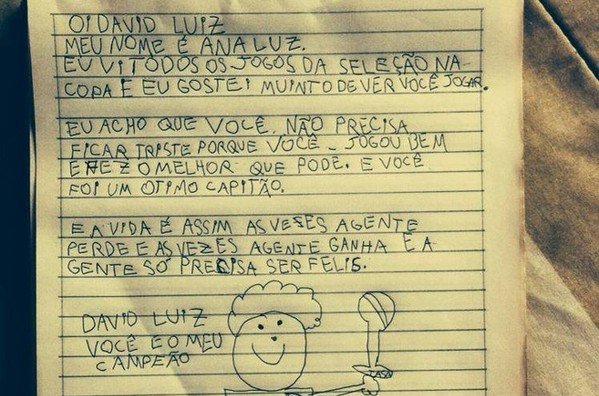 OI DAVID LUIZ
MEU NOME É ANA LUZ.
EU VI TODOS OS JOGOS DA SELEÇÃO NA
COPA E EU GOSTEI MUINTO DE VER VOCÊ JOGAR.
EU ACHO QUE VOCÊ. NÃO PRECISA
FICAR TRISTE PORQUE VOCÊ - JOGOU BEM
E FEZ O MELHOR QUE PODE. E VOCÊ
FOI UM OTIMO CAPITÃO.
E A VIDA É ASSIM AS VEZES AGENTE
PERDE E AS VEZES AGENTE GANHA E A
GENTE SÓ PRECISA SER FELIS.
DAVID LUIZ
VOCÊ E O MEU
CAMPEÃO